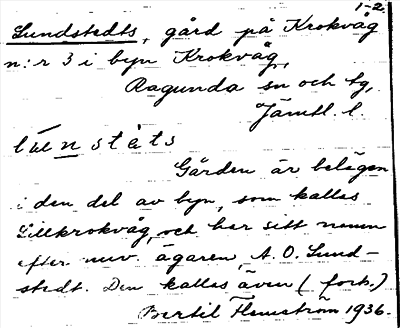 1-2.
Lundstedts, gård på Krokvåg
n:r 3 i byn Krokvåg,
Ragunda sn och tg,
Jämtl. l.
lúnstèts
Gården är belägen
i den del av byn, som kallas
Lillkrokvåg, och har sitt namn
efter nuv. ägaren, A. O. Lund-
stedt. Den kallas även (forts.)
Bertil Flemström 1936.